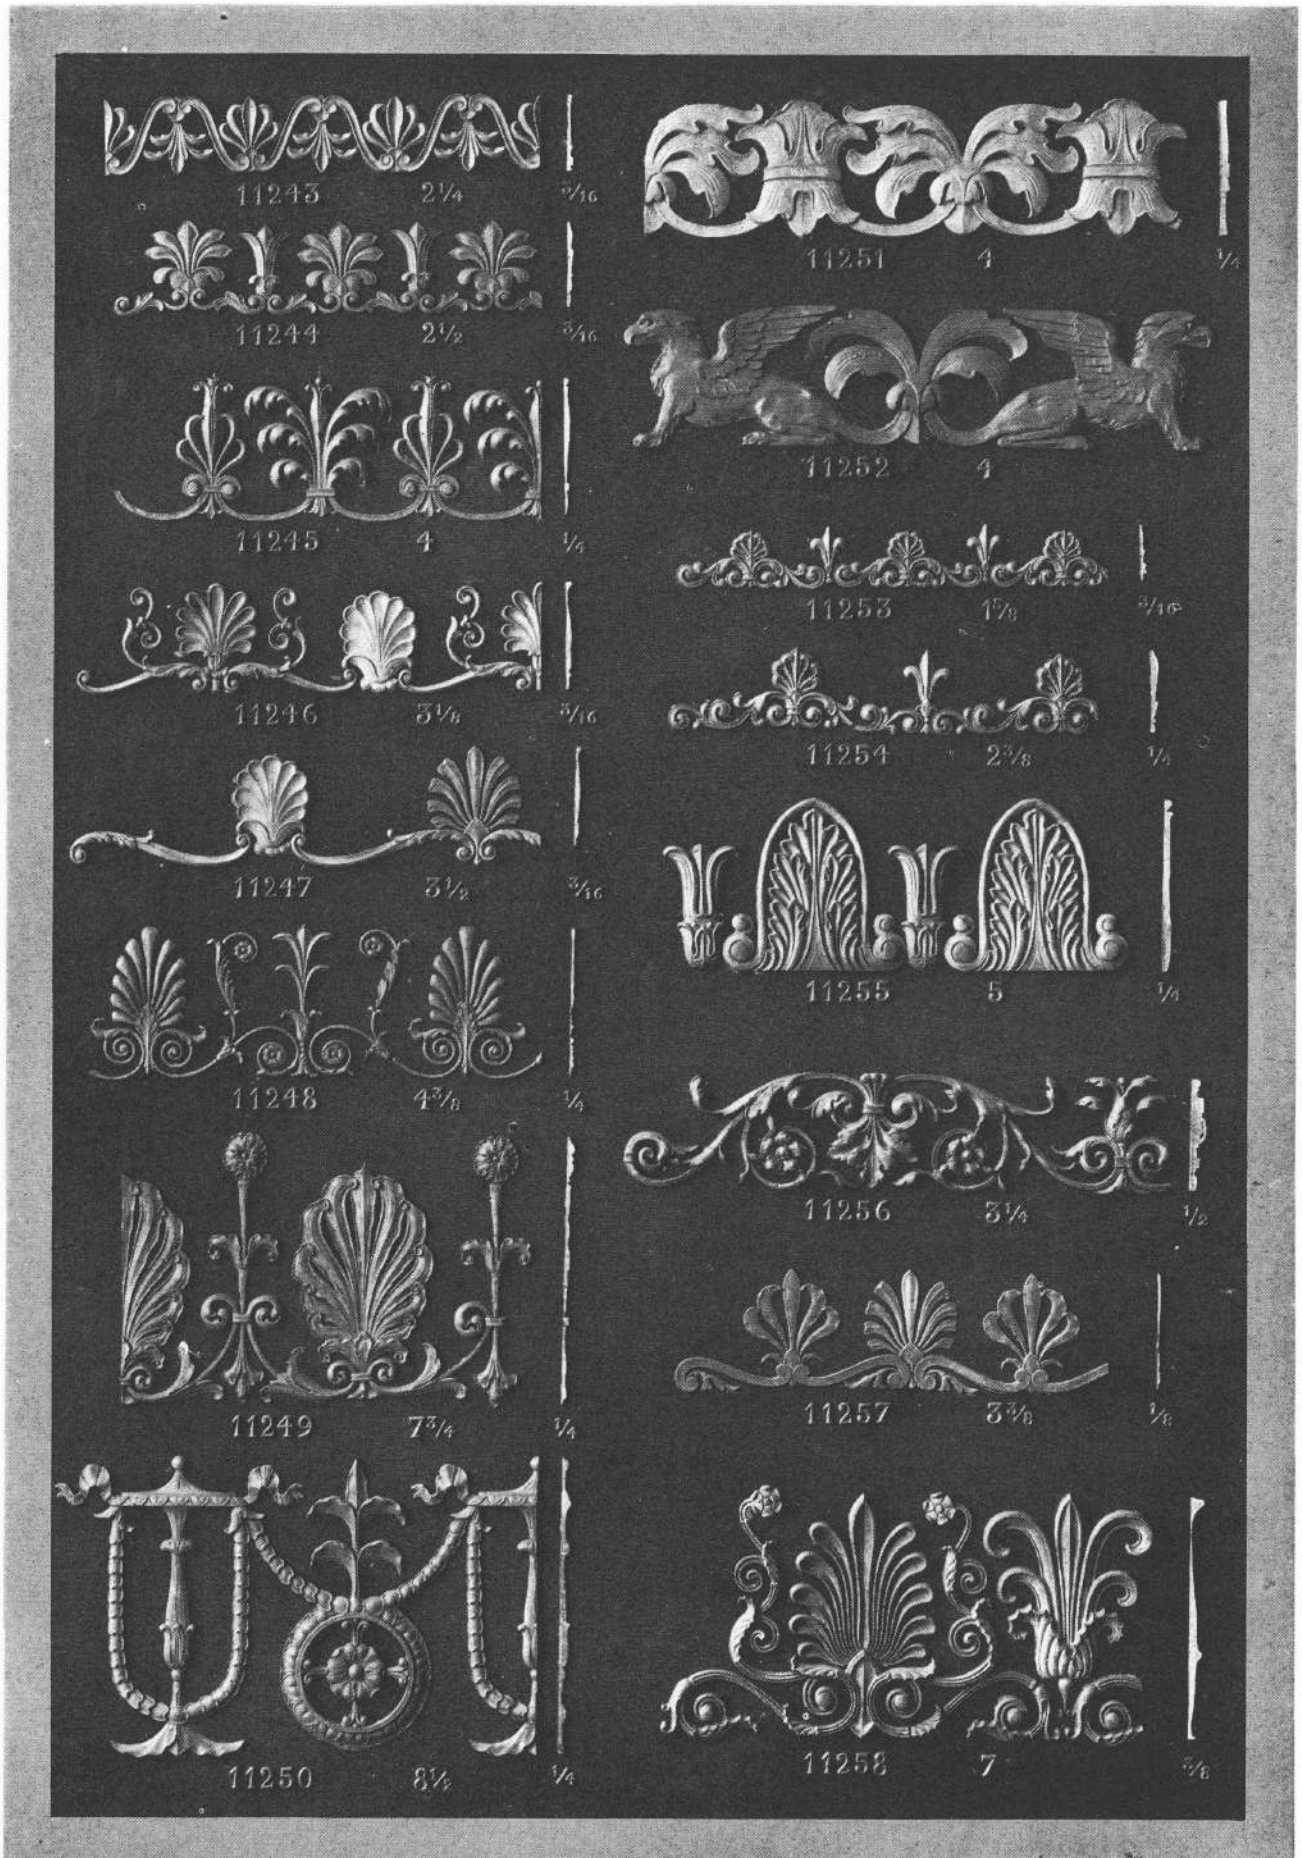 11243 2¼ 3/16
11244 2½ 3/16
11245 4 ¼
11246 3⅛ 3/16
11247 3½ 3/16
11248 4⅜ ¼
11249 7¾ ¼
11250 8½ ¼
11251 4 ¼
11252 4
11253 1⅝ 3/16
11254 2⅜ ¼
11255 5 ¼
11256 3¼ ½
11257 3⅜ ⅛
11258 7 ⅜